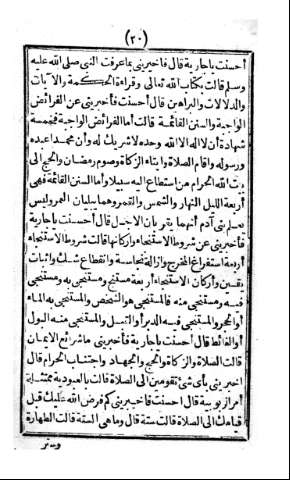 (٢٠)
أحسنت يا جارية قال فاخبريني بما عرفت النبي صلى الله عليه
وسلم قالت بكتاب الله تعالى وقراءة الحكمة والآيات
والدلالات والبراهين قال أحسنت فأخبريني عن الفرائض
الواجبة والسنن القائمة قالت أما الفرائض الواجبة فخمسة
شهادة أن لا اله الا الله وحده لا شريك له وأن محمدا عبده
ورسوله واقام الصلاة وايتاء الزكاة وصوم رمضان والحج الى
بيت الله الحرام من استطاع اليه سبيلا وأما السنن القائمة فهي
أربعة الليل النهار والشمس والقمر وهما يبليان العمر وليس
يعلم بني آدم أنهما يقربان الاجل قال أحسنت يا جارية
فأخبريني عن شروط الاستنجاء وأركانها قالت شروط الاستنجاء
أربعة استفراغ المخرج وازالة نجاسة وانقطاع شك واثبات
يقين وأركان الاستنجاء أربعة مستنج ومستنجى به ومستنجى
فيه ومستنجى منه فالمستنجي هو الشخص والمستنجى به الماء
أو الحجر والمستنجى فيه الدبر أو القبل والمستنجى منه البول
أو الغائط قال أحسنت يا جارية فأخبريني ما شرائع الايمان
قالت الصلاة والزكاة والحج والجهاد واجتناب الحرام قال
اخبريني بأي شئ تقومين الى الصلاة قالت بالعبودية ممتثلة
أمرا ربوبية قال احسنت فاخبريني كم فرض الله عليك قبل
قيامك الى الصلاة قالت ستة قال وما هي الستة قالت الطهارة